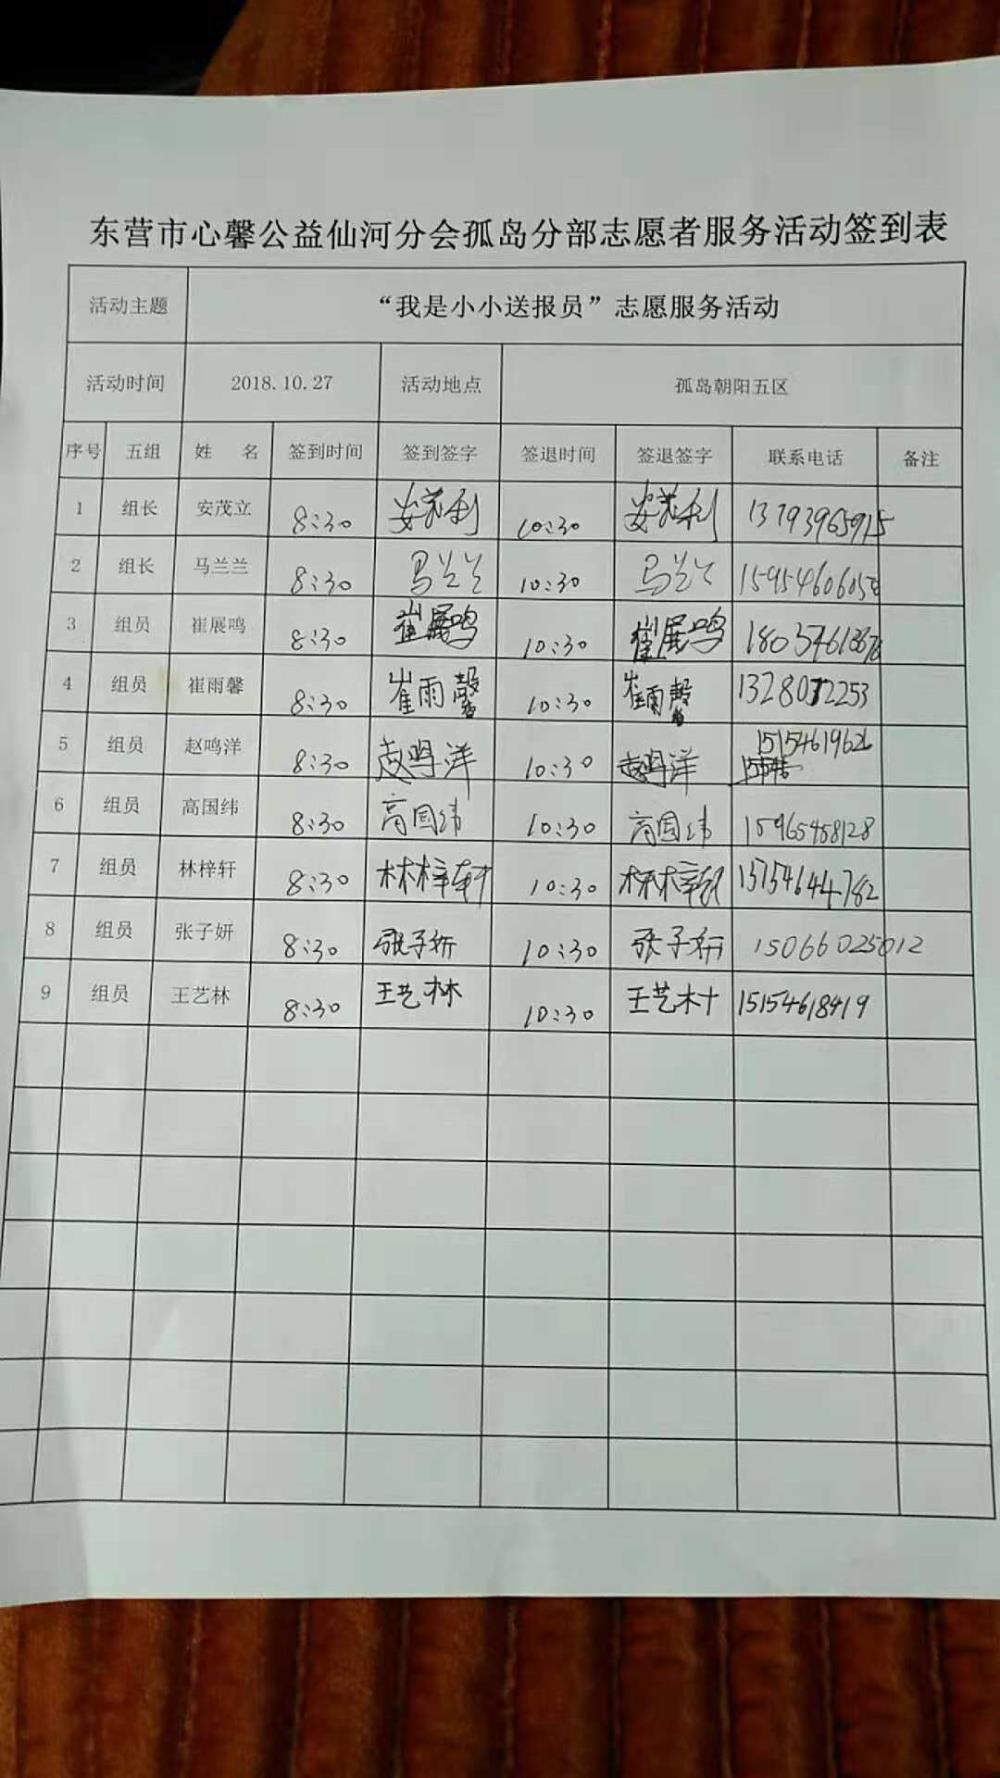 东营市心馨公益仙河分会孤岛分部志愿者服务活动签到表
活动主题 “我是小小送报员”志愿服务活动
活动时间 2018.10.27 活动地点 孤岛朝阳五区
序号 五组 姓 名 签到时间 签到签字 签退时间 签退签字 联系电话 备注
1 组长 安茂立 8:30 10:30 13793965915
2 组长 马兰兰 8:30 马兰兰 10:30 马兰兰
3 组员 崔展鸣 8:30 崔展鸣 10:30 崔展鸣
4 组员 崔雨馨 8:30 崔雨馨 10:30 崔雨馨
5 组员 赵鸣洋 8:30 赵鸣洋 10:30 赵鸣洋 15154619626
6 组员 高国纬 8:30 高国纬 10:30 高国纬 15965458128
7 组员 林梓轩 8:30 林梓轩 10:30 林梓轩 15154644782
8 组员 张子妍 8:30 张子妍 10:30 张子妍 15066025012
9 组员 王艺林 8:30 王艺林 10:30 王艺林 15154618419